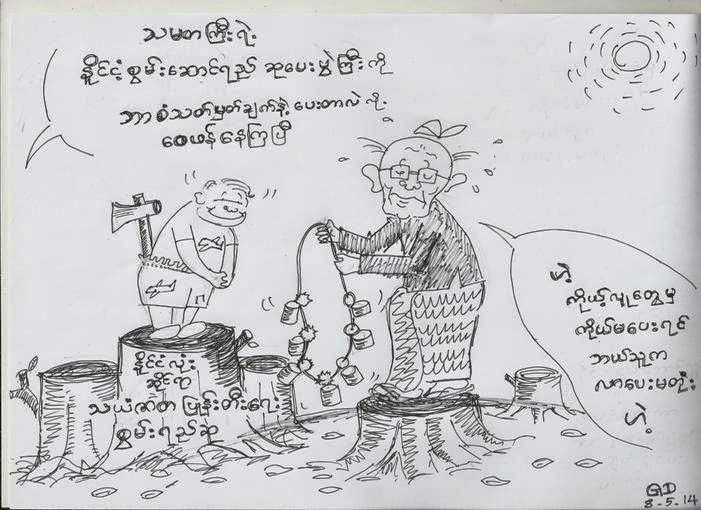 သမတကြီးရဲ့
နိူင်ငံ့စွမ်းဆောင်ရည် ဆုပေးပွဲကြီးကို
ဘာစံသတ်မှတ်ချက်နဲ့ ပေးတာလဲလို့
ဝေဖန်နေကြပြီ
ဟဲ့
ကိုယ့်လူတွေမှ
ကိုယ်မပေးရင်
ဘယ်သူက
လာပေးမတုံး
ဟဲ့
နိူင်ငံလုံး
ဆိုင်ရာ
သယံဇာတ ပြုန်းတီးရေး
စွမ်းရည်ဆု
GD
8-5-14